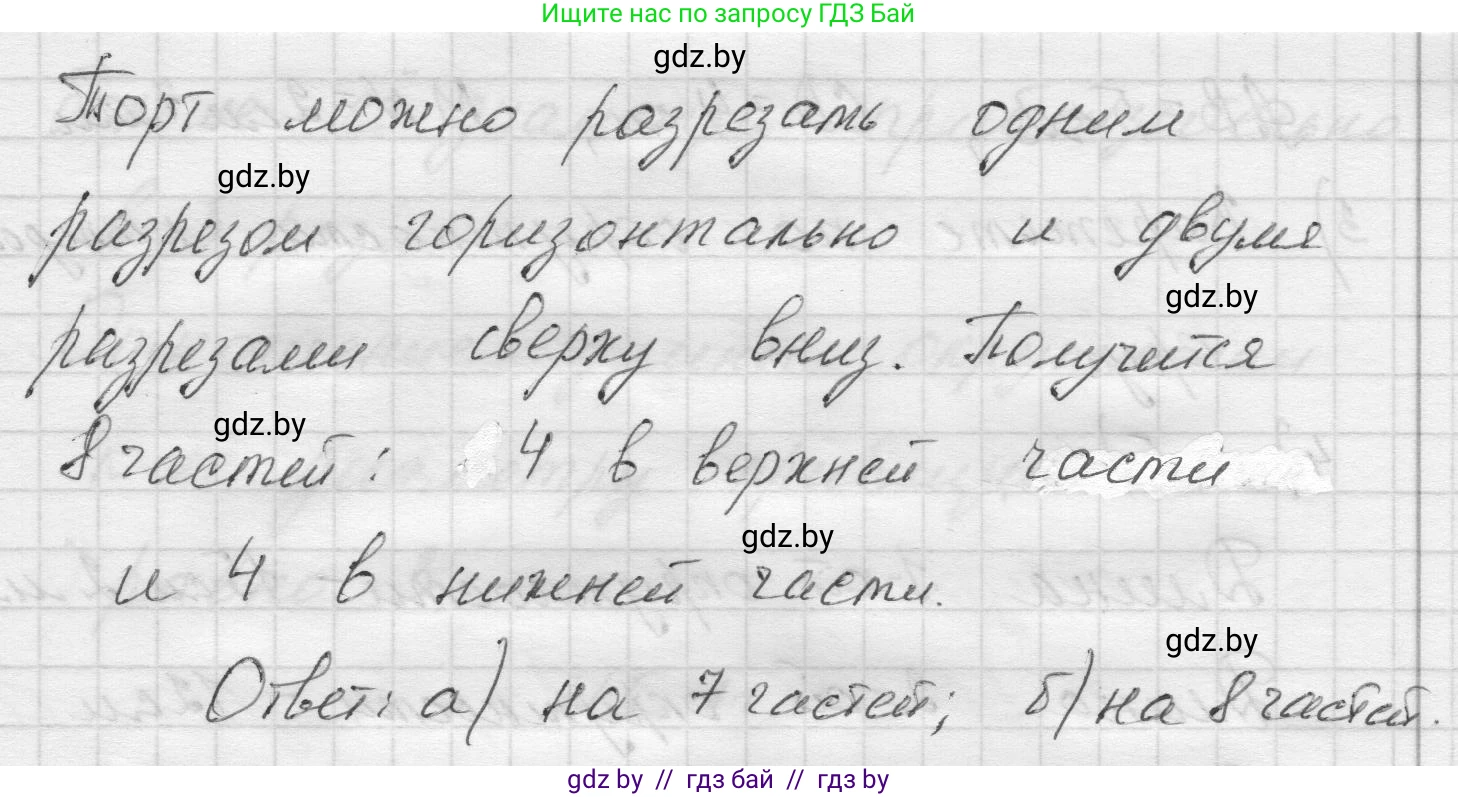 Ищите нас по запросу ГДЗ Бай
gdz.by
Торт можно разрезать одним
gdz.by
разрезом горизонтально и двумя
gdz.by
разрезами сверху вниз. Получится
gdz.by
8 частей: 4 в верхней части
gdz.by
и 4 в нижней части.
gdz.by
Ответ: а) на 7 частей; б) на 8 частей.
gdz.by // гдз бай // гдз by